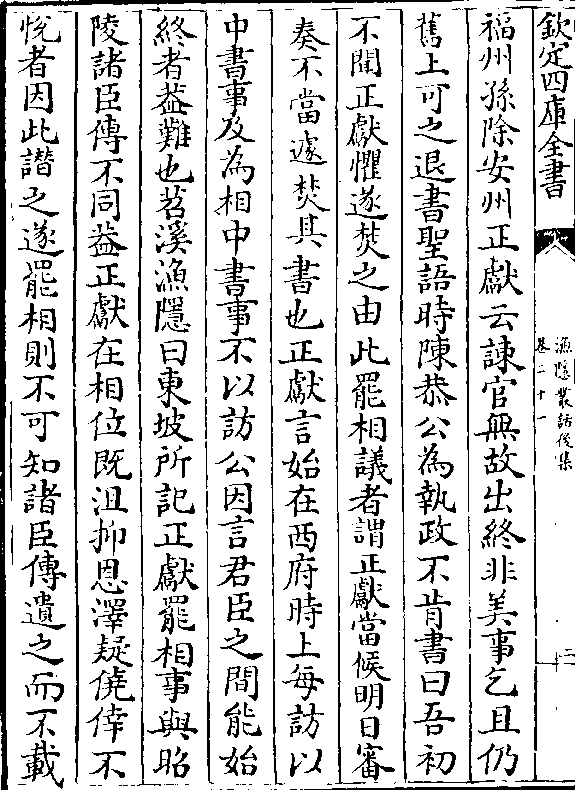 欽定四庫全書
漁隱叢話後集
卷二十一
二
福州孫除安州正獻云諫官無故出終非美事乞且仍
舊上可之退書聖語時陳恭公為執政不肯書曰吾初
不聞正獻懼遂焚之由此罷相議者謂正獻當候明日審
奏不當遽焚其書也正獻言始在西府時上每訪以
中書事及為相中書事不以訪公因言君臣之間能始
終者葢難也苕溪漁隱曰東坡所記正獻罷相事與昭
陵諸臣傳不同葢正獻在相位既沮抑恩澤疑僥倖不
悅者因此譖之遂罷相則不可知諸臣傳遺之而不載